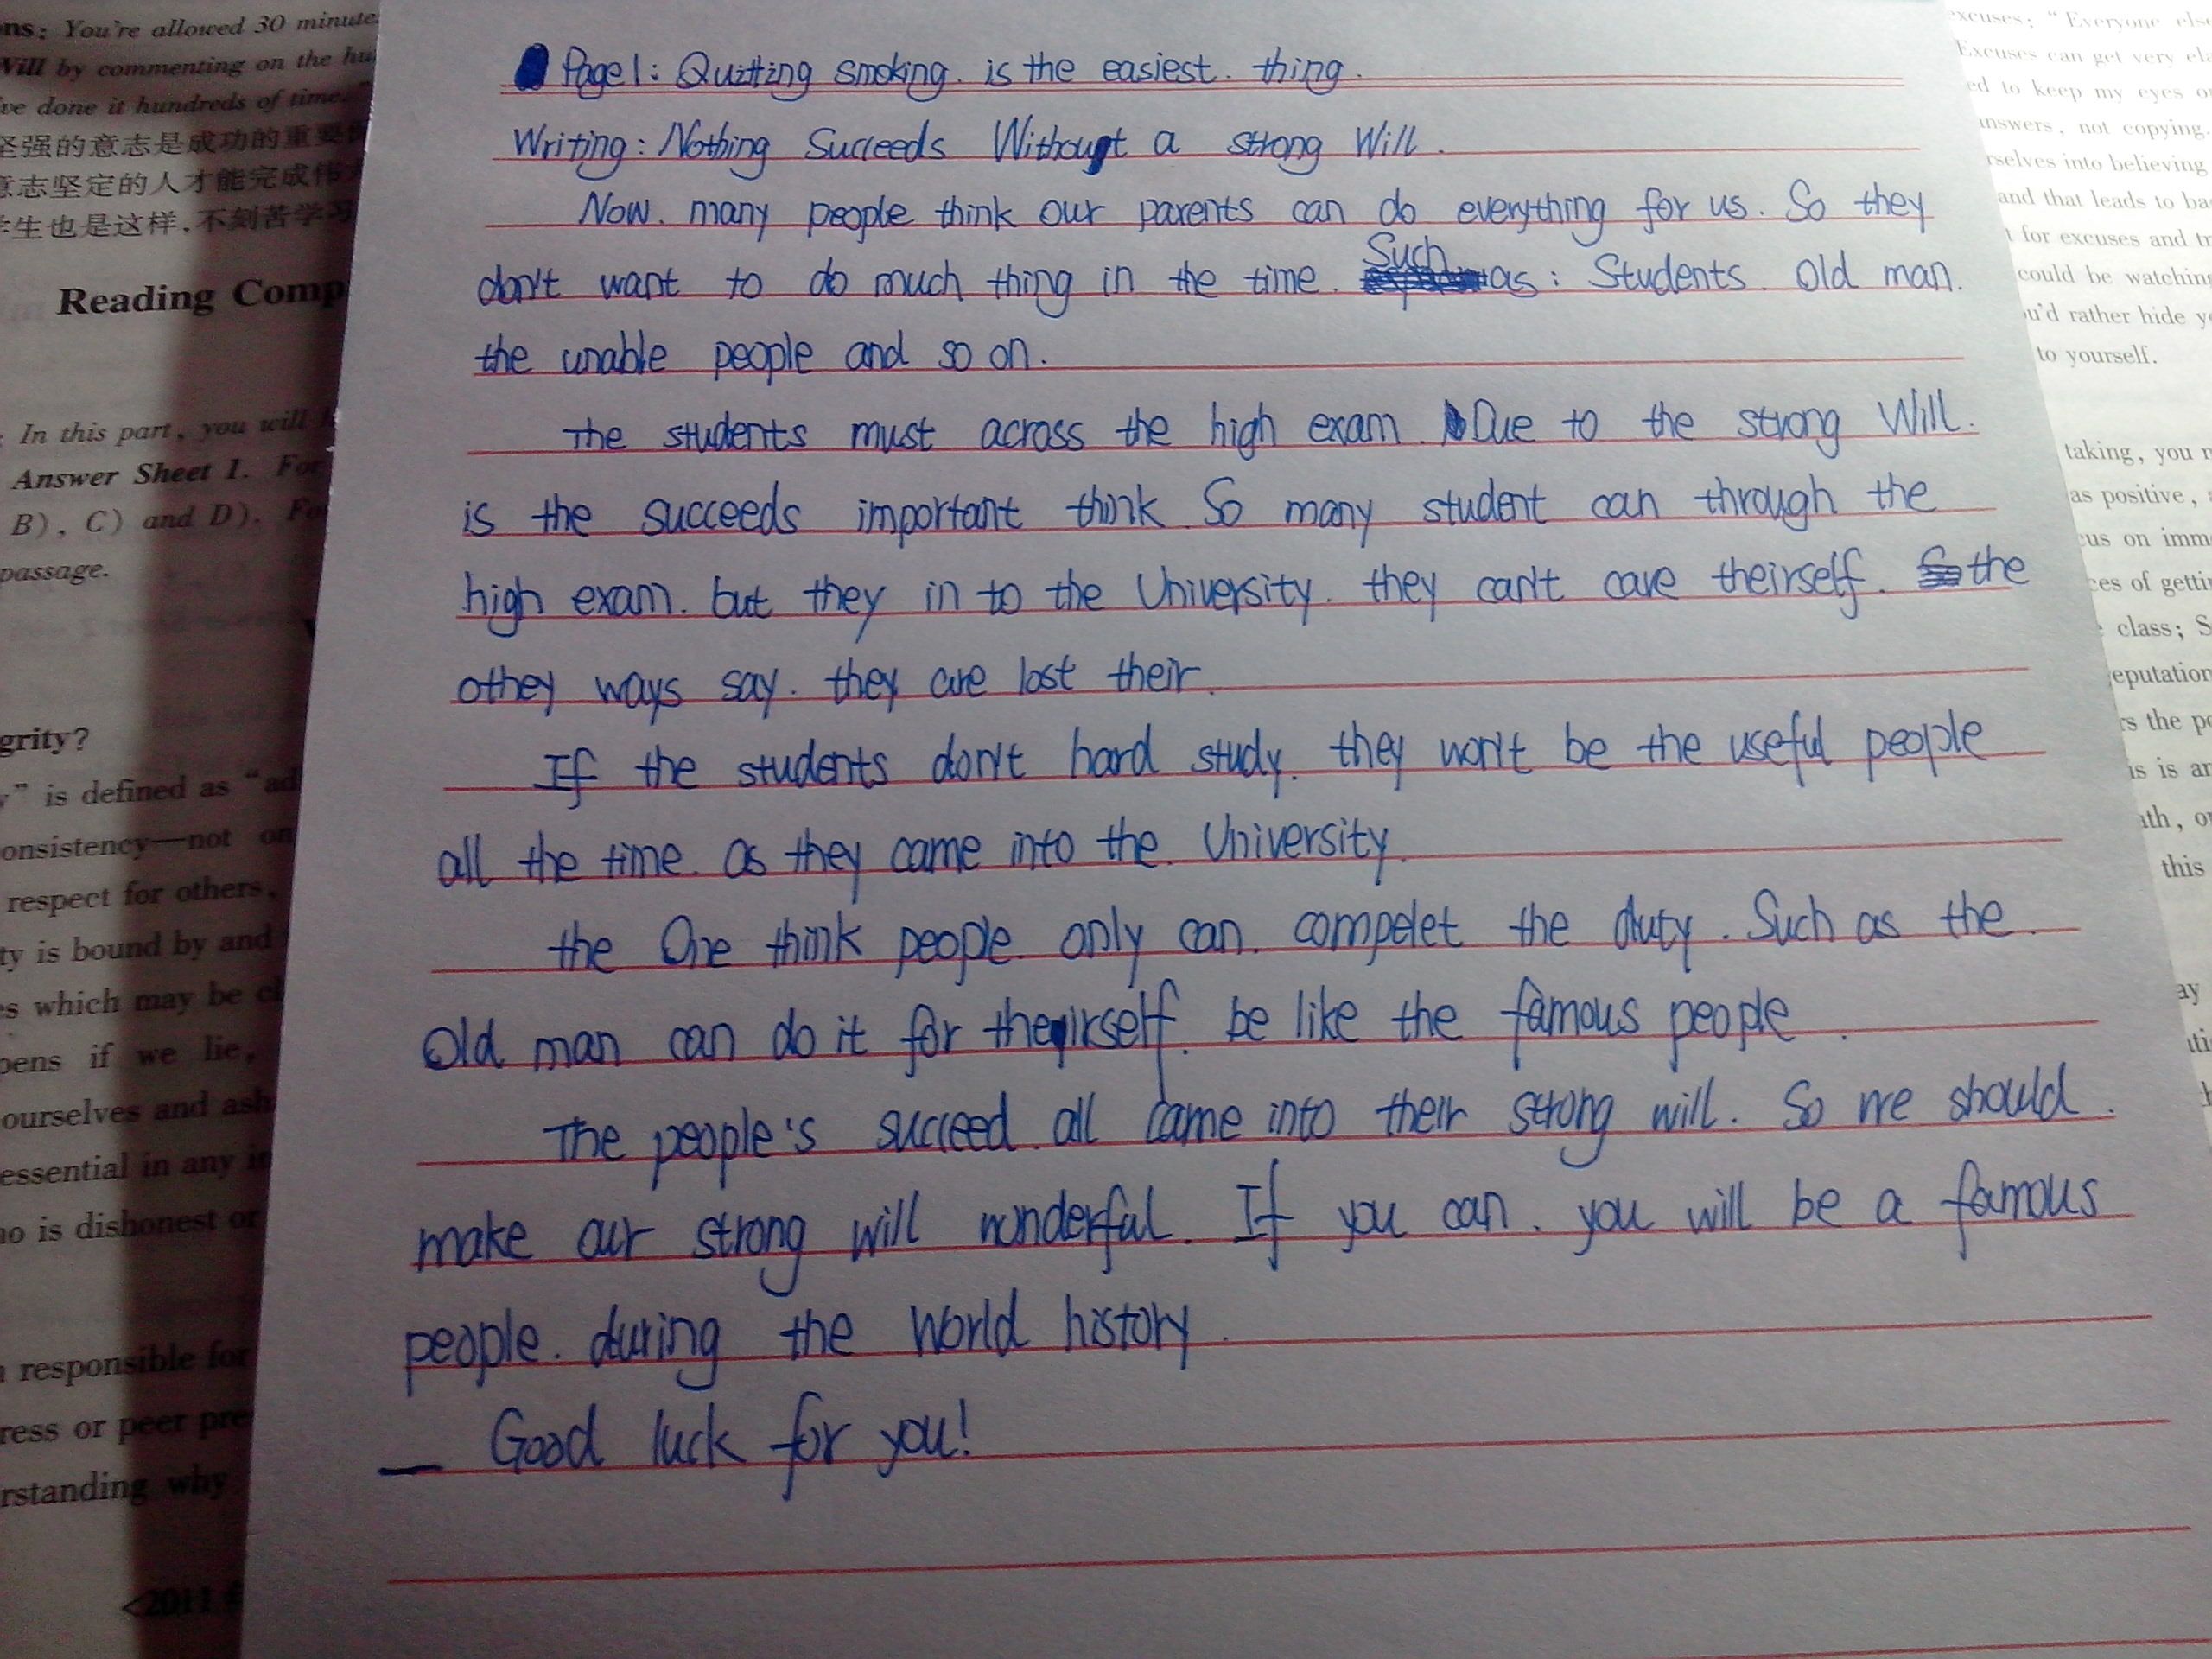 ns: You're allowed 30 minute
Will by commenting on the hu
've done it hundreds of time."
坚强的意志是成功的重要
意志坚定的人才能完成伟
学生也是这样,不刻苦学习
Reading Comp
In this part, you will
Answer Sheet 1. For
B), C) and D). Fo
passage.
grity?
y" is defined as "ad
onsistency—not on
respect for others,
ty is bound by and
s which may be
pens if we lie,
ourselves and ash
essential in any i
no is dishonest or
responsible for
ress or peer pre
rstanding why
<2011
Page1: Quitting smoking. is the easiest. thing.
Writing: Nothing Succeeds Without a strong Will.
Now. many people think our parents can do everything for us. So they
don't want to do much thing in the time. Such as: Students. Old man.
the unable people and so on.
The students must across the high exam. Due to the strong Will.
is the succeeds important think. So many student can through the
high exam. but they in to the University. they can't care theirself. the
othey ways say. they are lost their.
If the students don't hard study. they won't be the useful people
all the time. as they came into the. University.
the One think people. only can. compelet the duty. Such as the.
Old man can do it for theirself. be like the famous people.
The people's succeed. all came into their strong will. So we should.
make our strong will wonderful. If you can. you will be a famous
people. during the World history.
Good luck for you!
excuses: "Everyone else
Excuses can get very ela
ed to keep my eyes o
answers, not copying.
rselves into believing
and that leads to ba
for excuses and tr
could be watching
u'd rather hide y
to yourself.
taking, you
as positive,
us on imm
ces of getti
class; S
eputation
rs the p
is is ar
ath, o
this